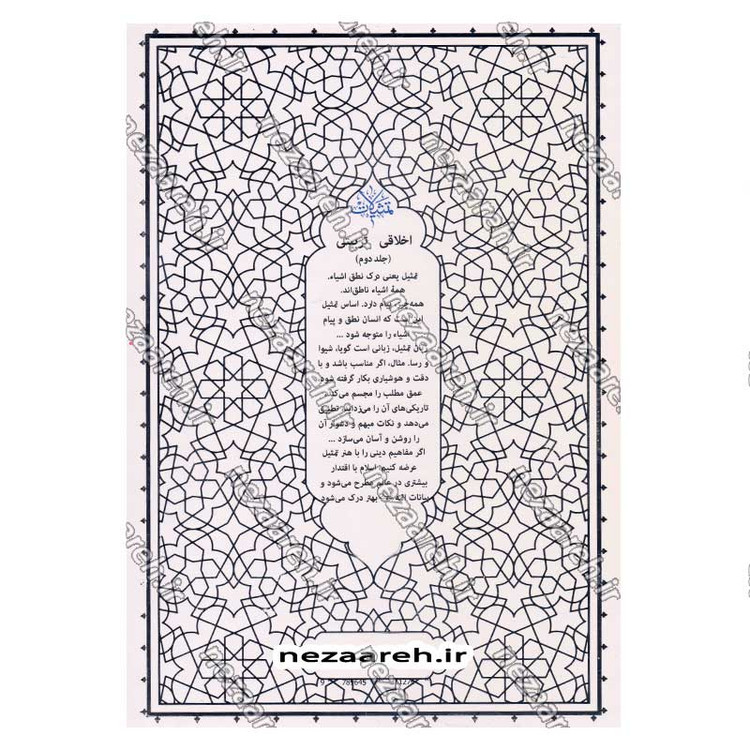 تمثیلات
اخلاقی تربیتی
(جلد دوم)
تمثیل یعنی درک نطق اشیاء.
همهٔ اشیاء ناطق‌اند.
همه‌چیز پیام دارد. اساس تمثیل
این است که انسان نطق و پیام
اشیاء را متوجه شود ...
زبان تمثیل، زبانی است گویا، شیوا
و رسا. مثال، اگر مناسب باشد و با
دقت و هوشیاری بکار گرفته شود
عمق مطلب را مجسم می‌کند.
تاریکی‌های آن را می‌زداید تطبیق
می‌دهد و نکات مبهم و دشوار آن
را روشن و آسان می‌سازد ...
اگر مفاهیم دینی را با هنر تمثیل
عرضه کنیم، اسلام با اقتدار
بیشتری در عالم مطرح می‌شود و
بیانات بهتر درک می‌شود
nezaareh.ir